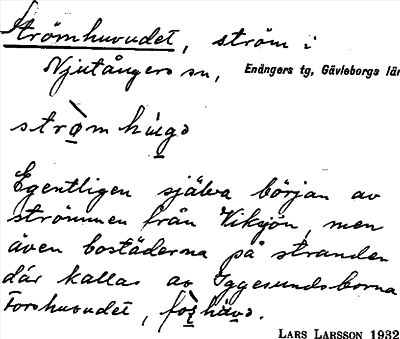 Strömhuvudet, ström i
Njutångers sn, Enångers tg, Gävleborgs län
Egentligen själva början av
strömmen från Viksjön, men
även bostäderna på stranden
där kallas av Iggesundsborna
Forshuvudet,
LARS LARSSON 1932